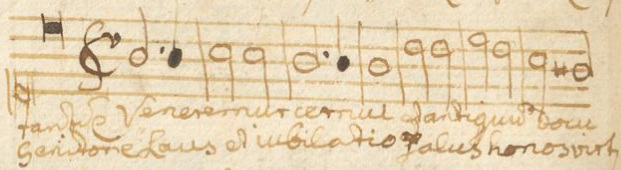 Veneremur cernui et antiquu docu
Genitori Laus et iubilatio Salus honos virt